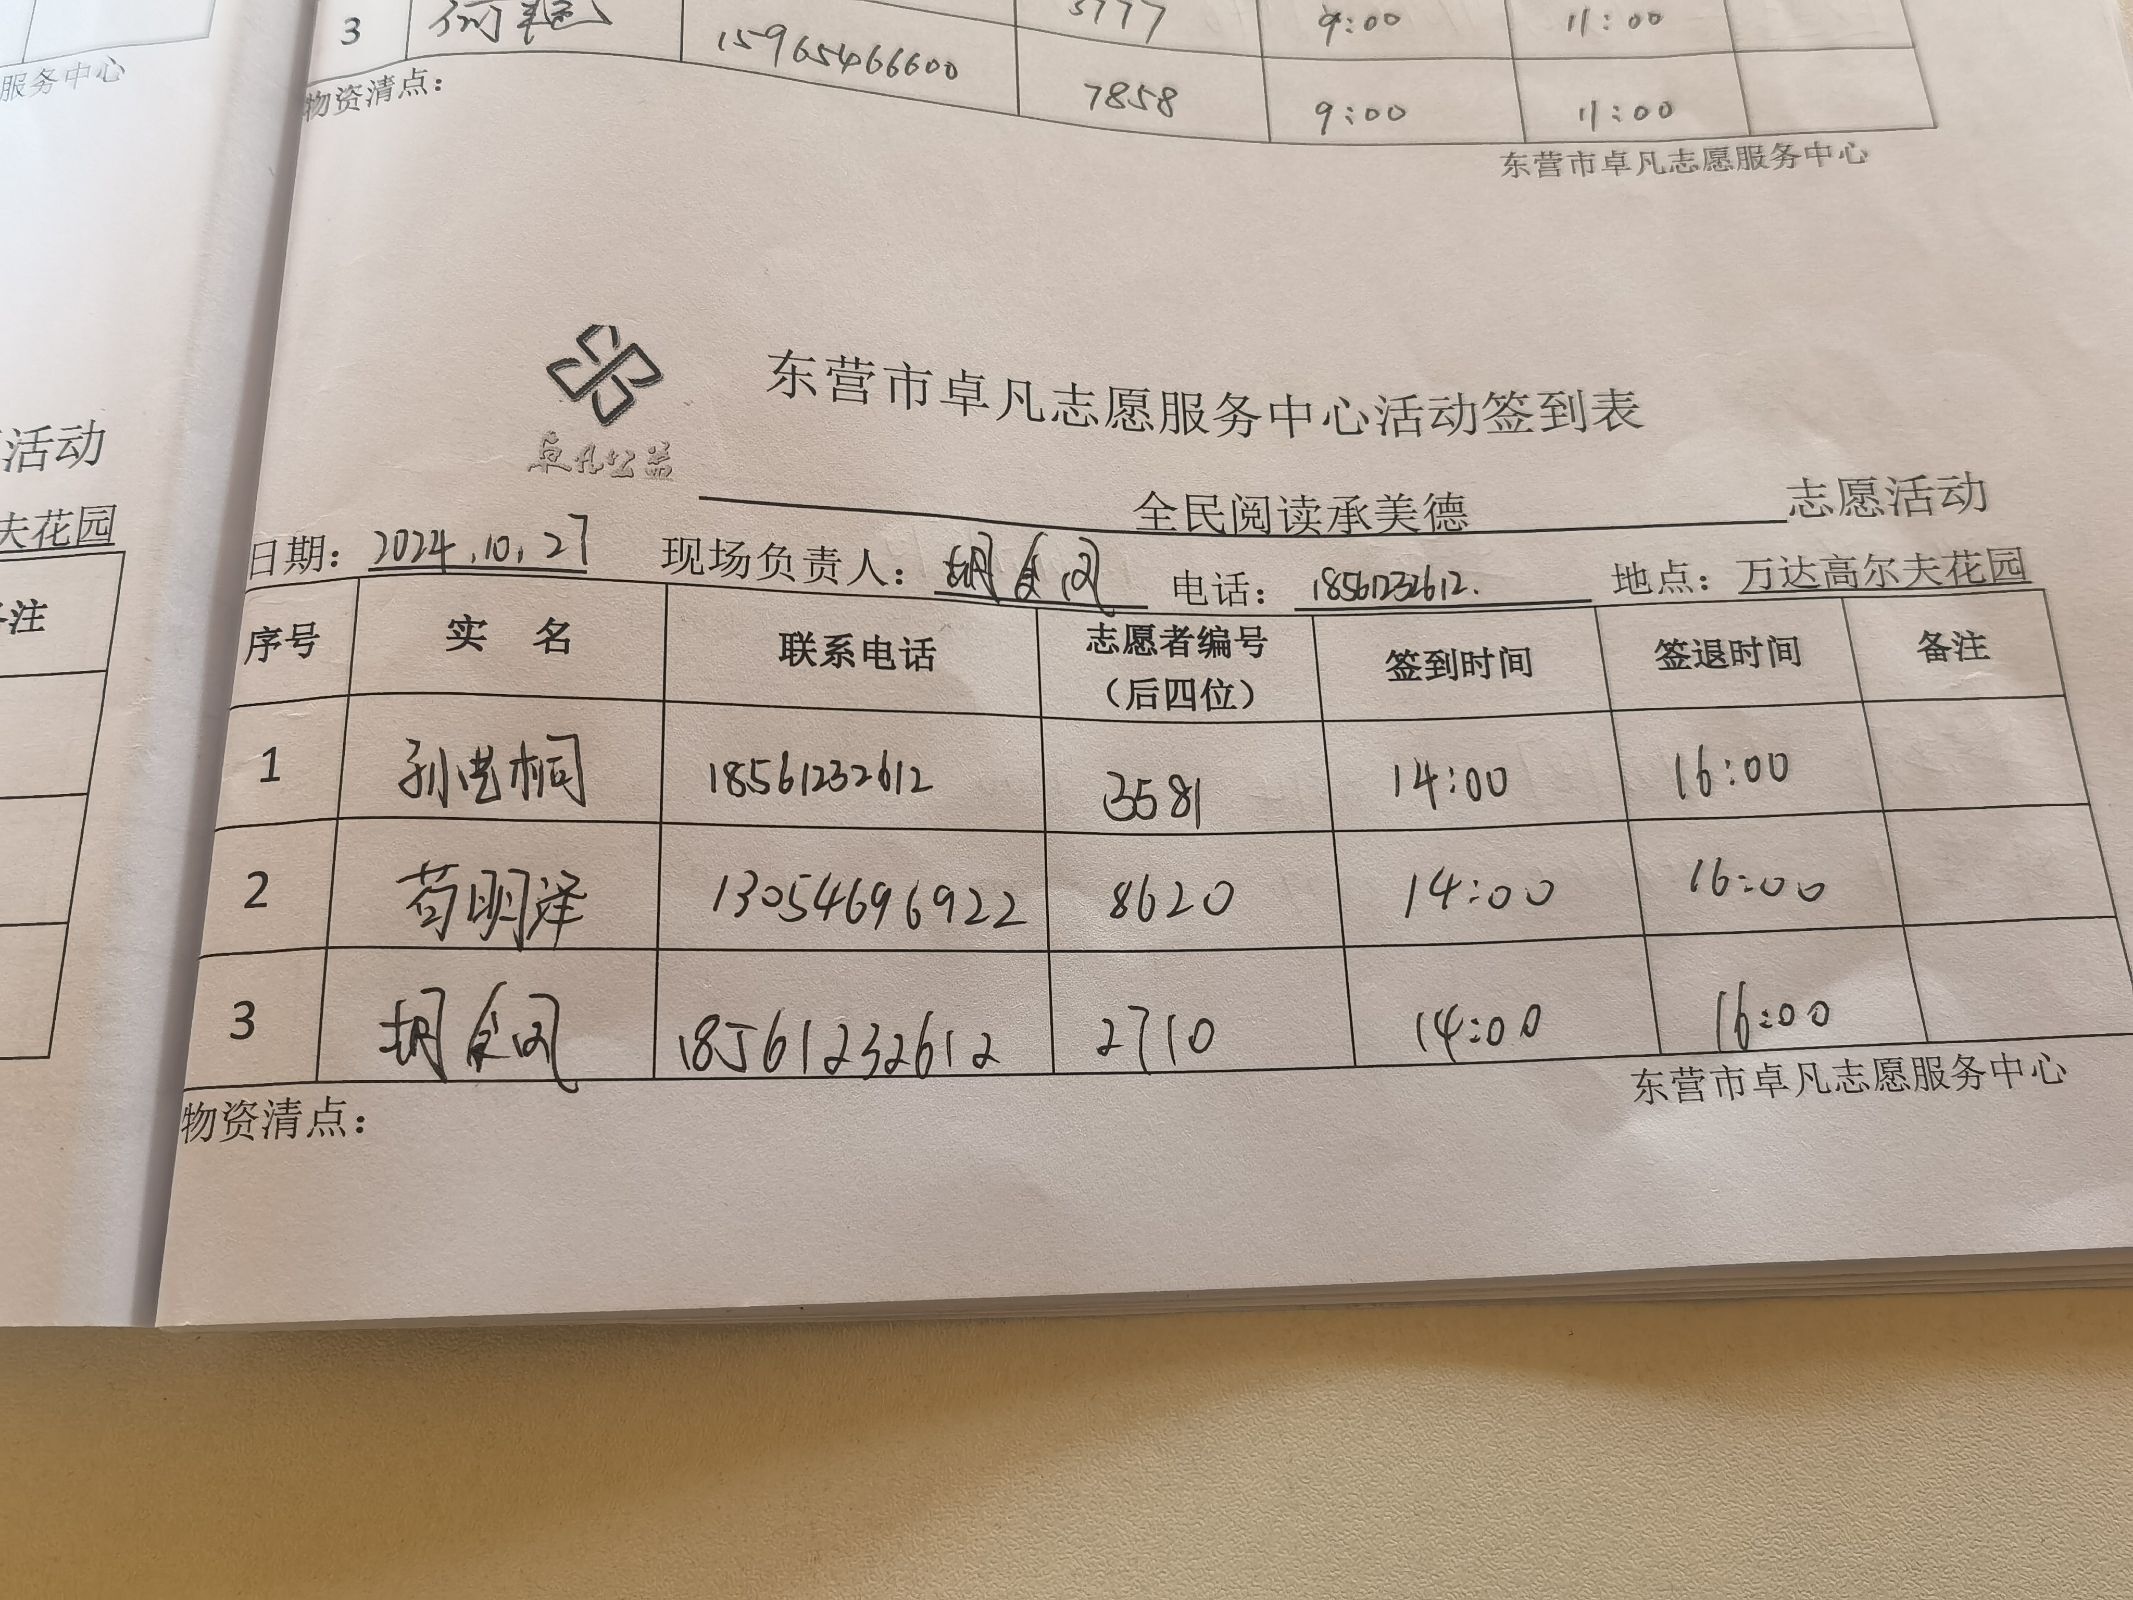 服务中心
活动
夫花园
注
3 15965466600 3777 9:00 11:00
7858 9:00 11:00
物资清点：
东营市卓凡志愿服务中心
卓凡公益
东营市卓凡志愿服务中心活动签到表
全民阅读承美德 志愿活动
日期：2024.10.27 现场负责人：胡 电话：18561232612. 地点：万达高尔夫花园
序号 实 名 联系电话 志愿者编号（后四位） 签到时间 签退时间 备注
1 孙浩桐 18561232612 3581 14:00 16:00
2 苟明泽 13054696922 8620 14:00 16:00
3 胡 18561232612 2710 14:00 16:00
物资清点：
东营市卓凡志愿服务中心